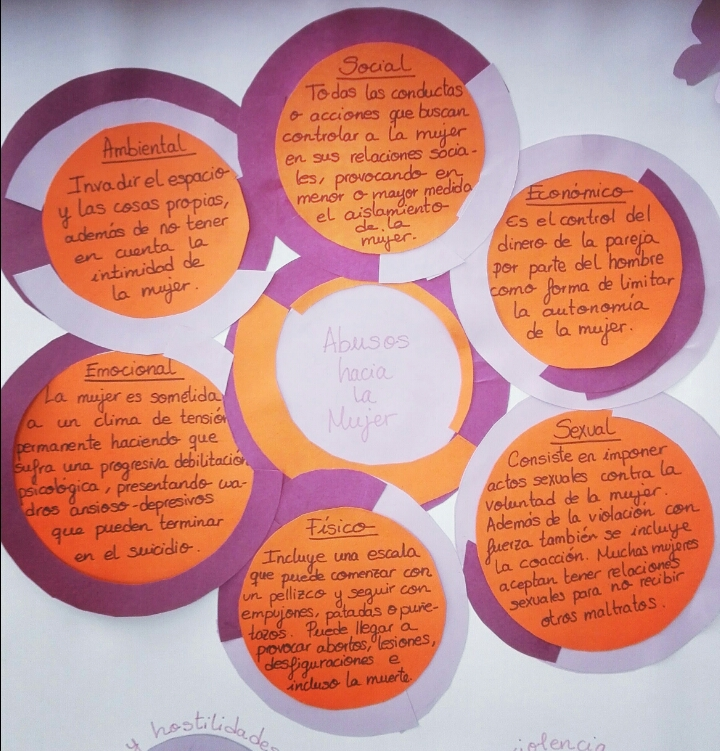 Social
Todas las conductas
o acciones que buscan
controlar a la mujer
en sus relaciones socia-
les, provocando en
menor o mayor medida
el aislamiento
de la
mujer.
Ambiental
Invadir el espacio
y las cosas propias,
además de no tener
en cuenta la
intimidad de
la mujer.
Económico
Es el control del
dinero de la pareja
por parte del hombre
como forma de limitar
la autonomía
de la mujer.
Abusos
hacia
la
Mujer
Emocional
La mujer es sometida
a un clima de tensión
permanente haciendo que
sufra una progresiva debilitación
psicológica, presentando cua-
dros ansioso-depresivos
que pueden terminar
en el suicidio.
Sexual
Consiste en imponer
actos sexuales contra la
voluntad de la mujer.
Además de la violación con
fuerza también se incluye
la coacción. Muchas mujeres
aceptan tener relaciones
sexuales para no recibir
otros maltratos.
Físico
Incluye una escala
que puede comenzar con
un pellizco y seguir con
empujones, patadas o puñe-
tazos. Puede llegar a
provocar abortos, lesiones,
desfiguraciones e
incluso la muerte.
y hostilidades
iolencia